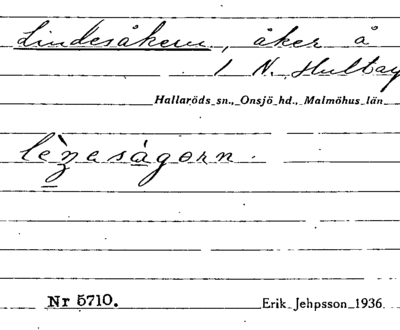 Lindesåkern, åker å
1 N. Hultay
Hallaröds sn., Onsjö hd., Malmöhus län
lèn̥esågorn.
Nr 5710.
Erik Jehpsson 1936